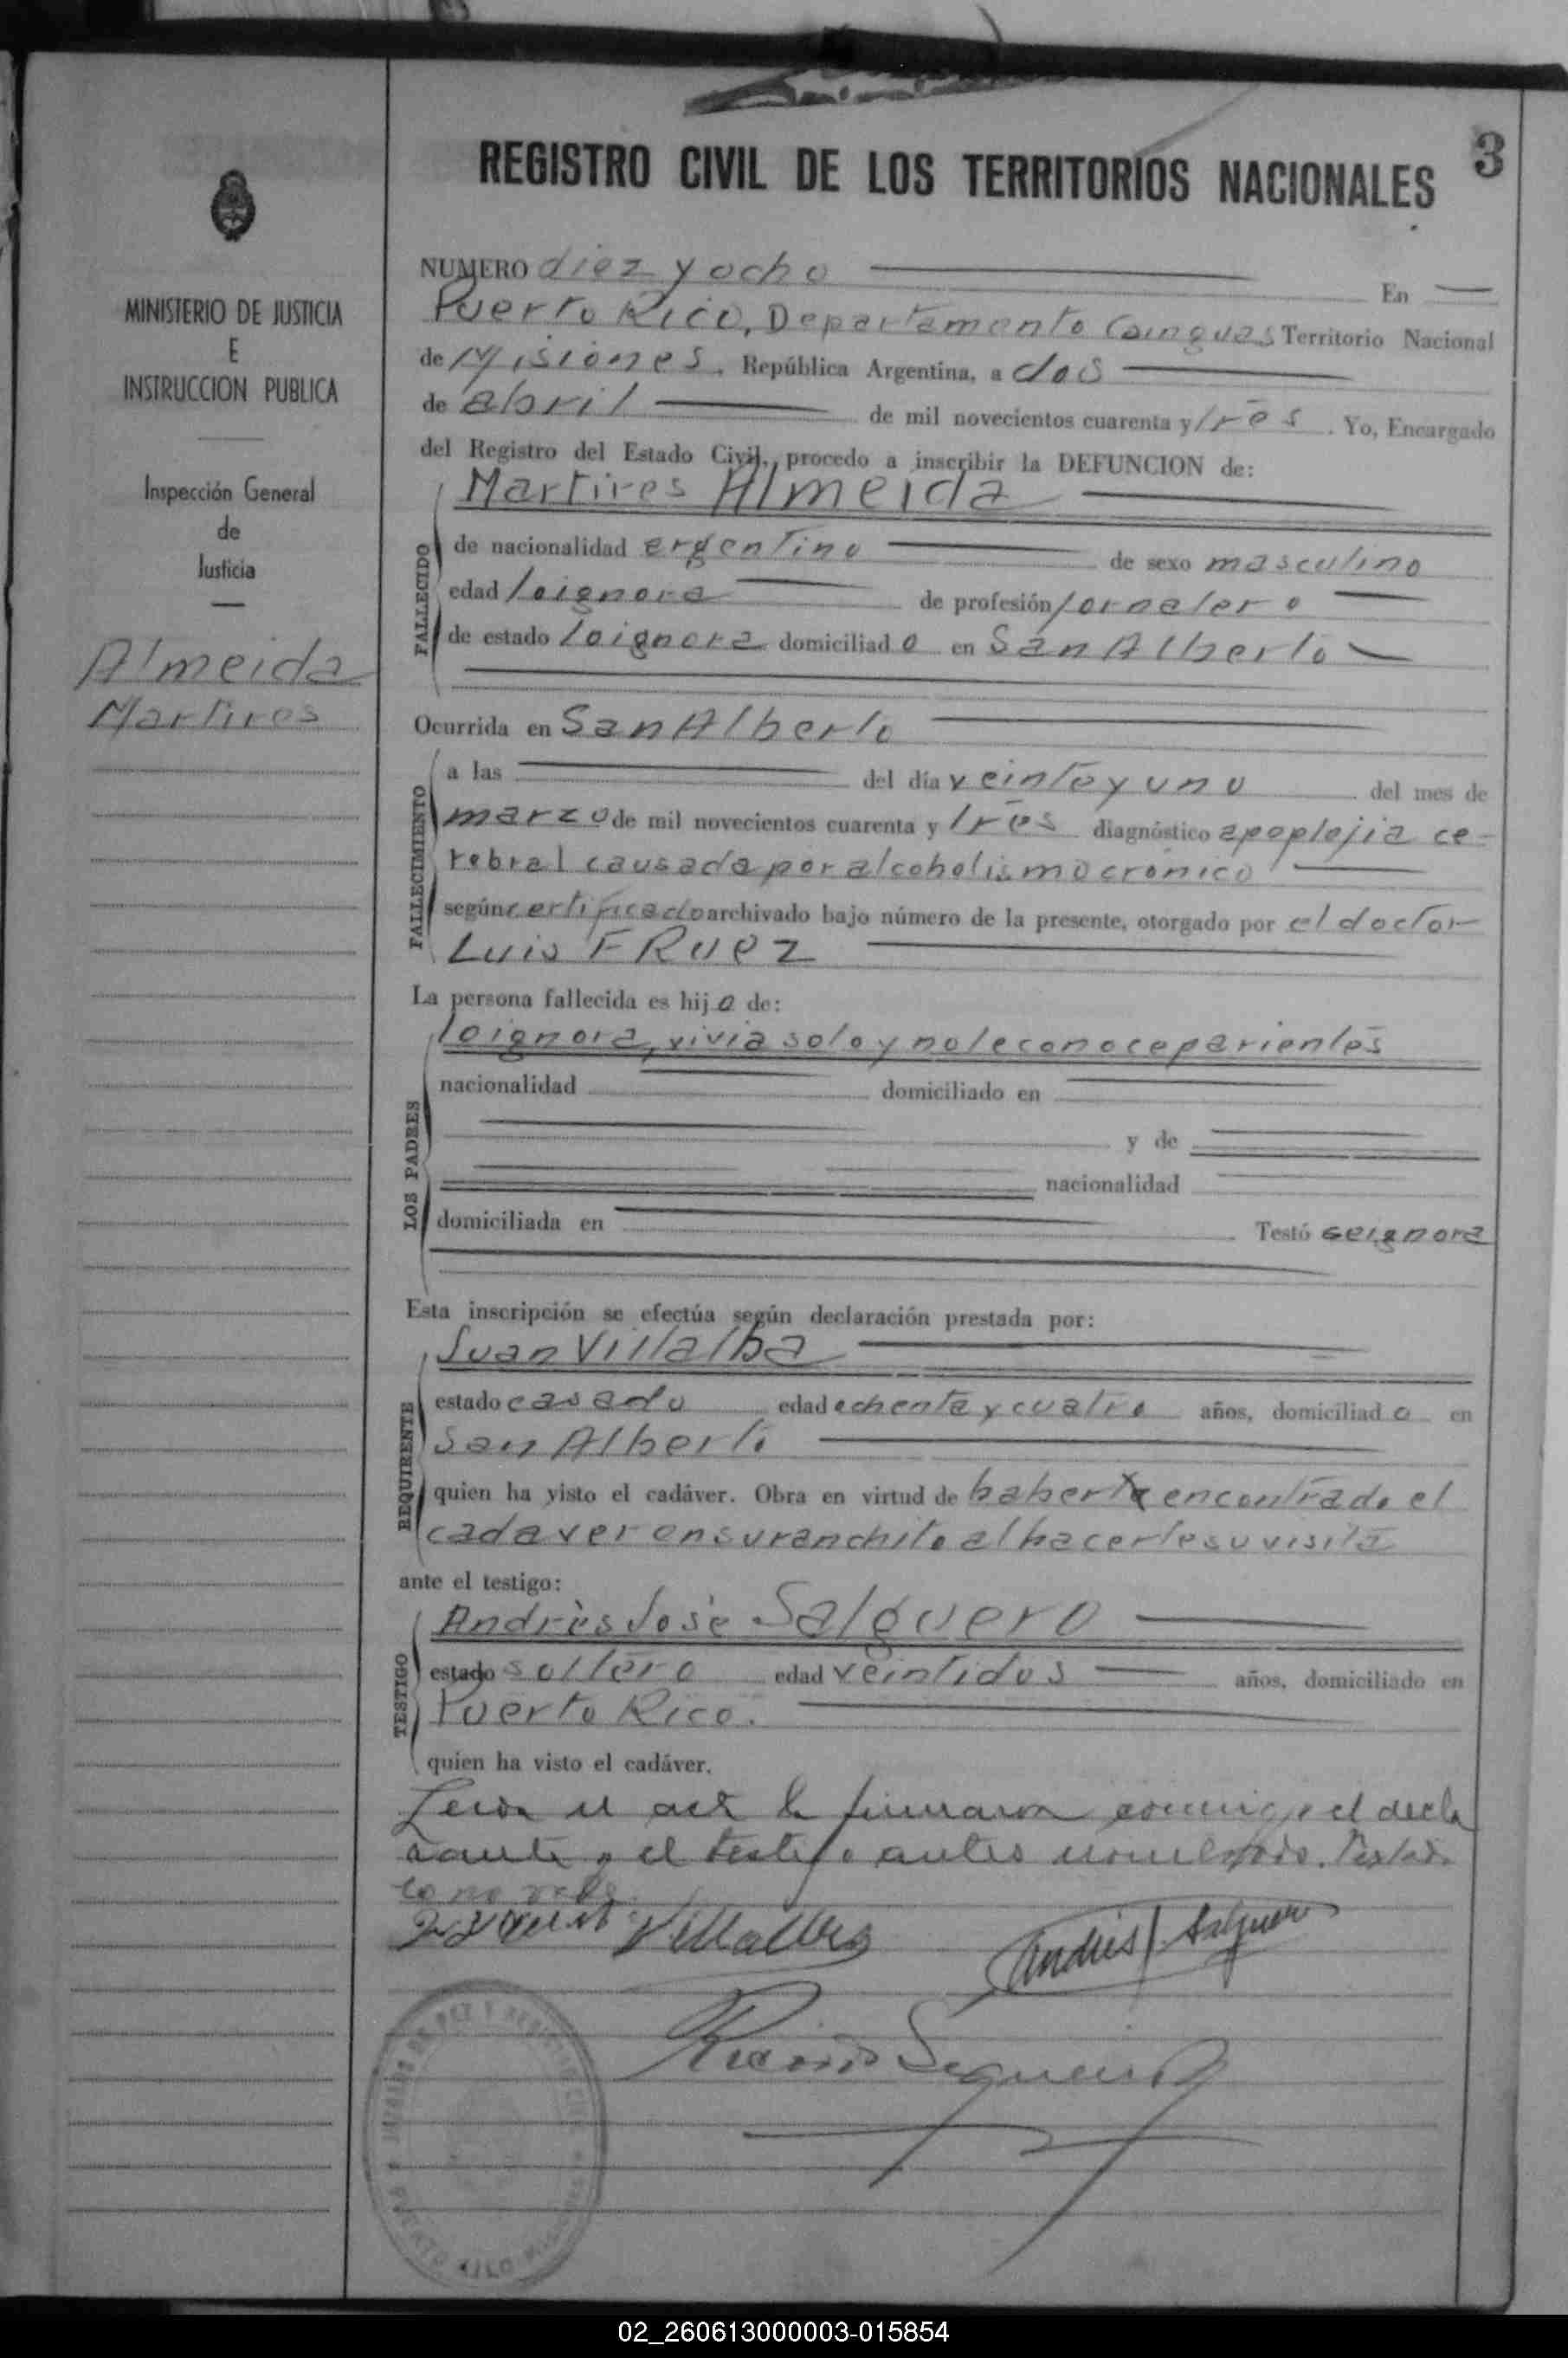 REGISTRO CIVIL DE LOS TERRITORIOS NACIONALES
3
MINISTERIO DE JUSTICIA
E
INSTRUCCION PUBLICA
Inspección General
de
Justicia
Almeida
Martires
NUMERO diez y ocho En
Puerto Rico, Departamento Cainguas Territorio Nacional
de Misiones. República Argentina, a dos
de abril de mil novecientos cuarenta y tres. Yo, Encargado
del Registro del Estado Civil, procedo a inscribir la DEFUNCION de:
Martires Almeida
FALLECIDO
de nacionalidad argentino de sexo masculino
edad loignora de profesión jornalero
de estado loignora domiciliado en San Alberto
Ocurrida en San Alberto
FALLECIMIENTO
a las del día veinte y uno del mes de
marzo de mil novecientos cuarenta y tres diagnóstico apoplejia ce-
rebral causada por alcoholismo cronico
según certificado archivado bajo número de la presente, otorgado por el doctor
Luis F Ruez
La persona fallecida es hijo de:
LOS PADRES
loignora, vivia solo y no le conoce parientes
nacionalidad domiciliado en
y de
nacionalidad
domiciliada en Testó seignora
Esta inscripción se efectúa según declaración prestada por:
REQUIRENTE
Juan Villalba
estado casado edad ochenta y cuatro años, domiciliado en
San Alberto
quien ha visto el cadáver. Obra en virtud de haber encontrado el
cadaver en su ranchito al hacerle su visita
ante el testigo:
TESTIGO
Andrès Josè Salguero
estado soltero edad veintidos años, domiciliado en
Puerto Rico.
quien ha visto el cadáver.
Leida el acta la firmaron conmigo el decla
rante y el testigo antes nombrados. Testado
lo no vale.
Villalba
Andrés J Salguero
PUERTO RICO
02_260613000003-015854